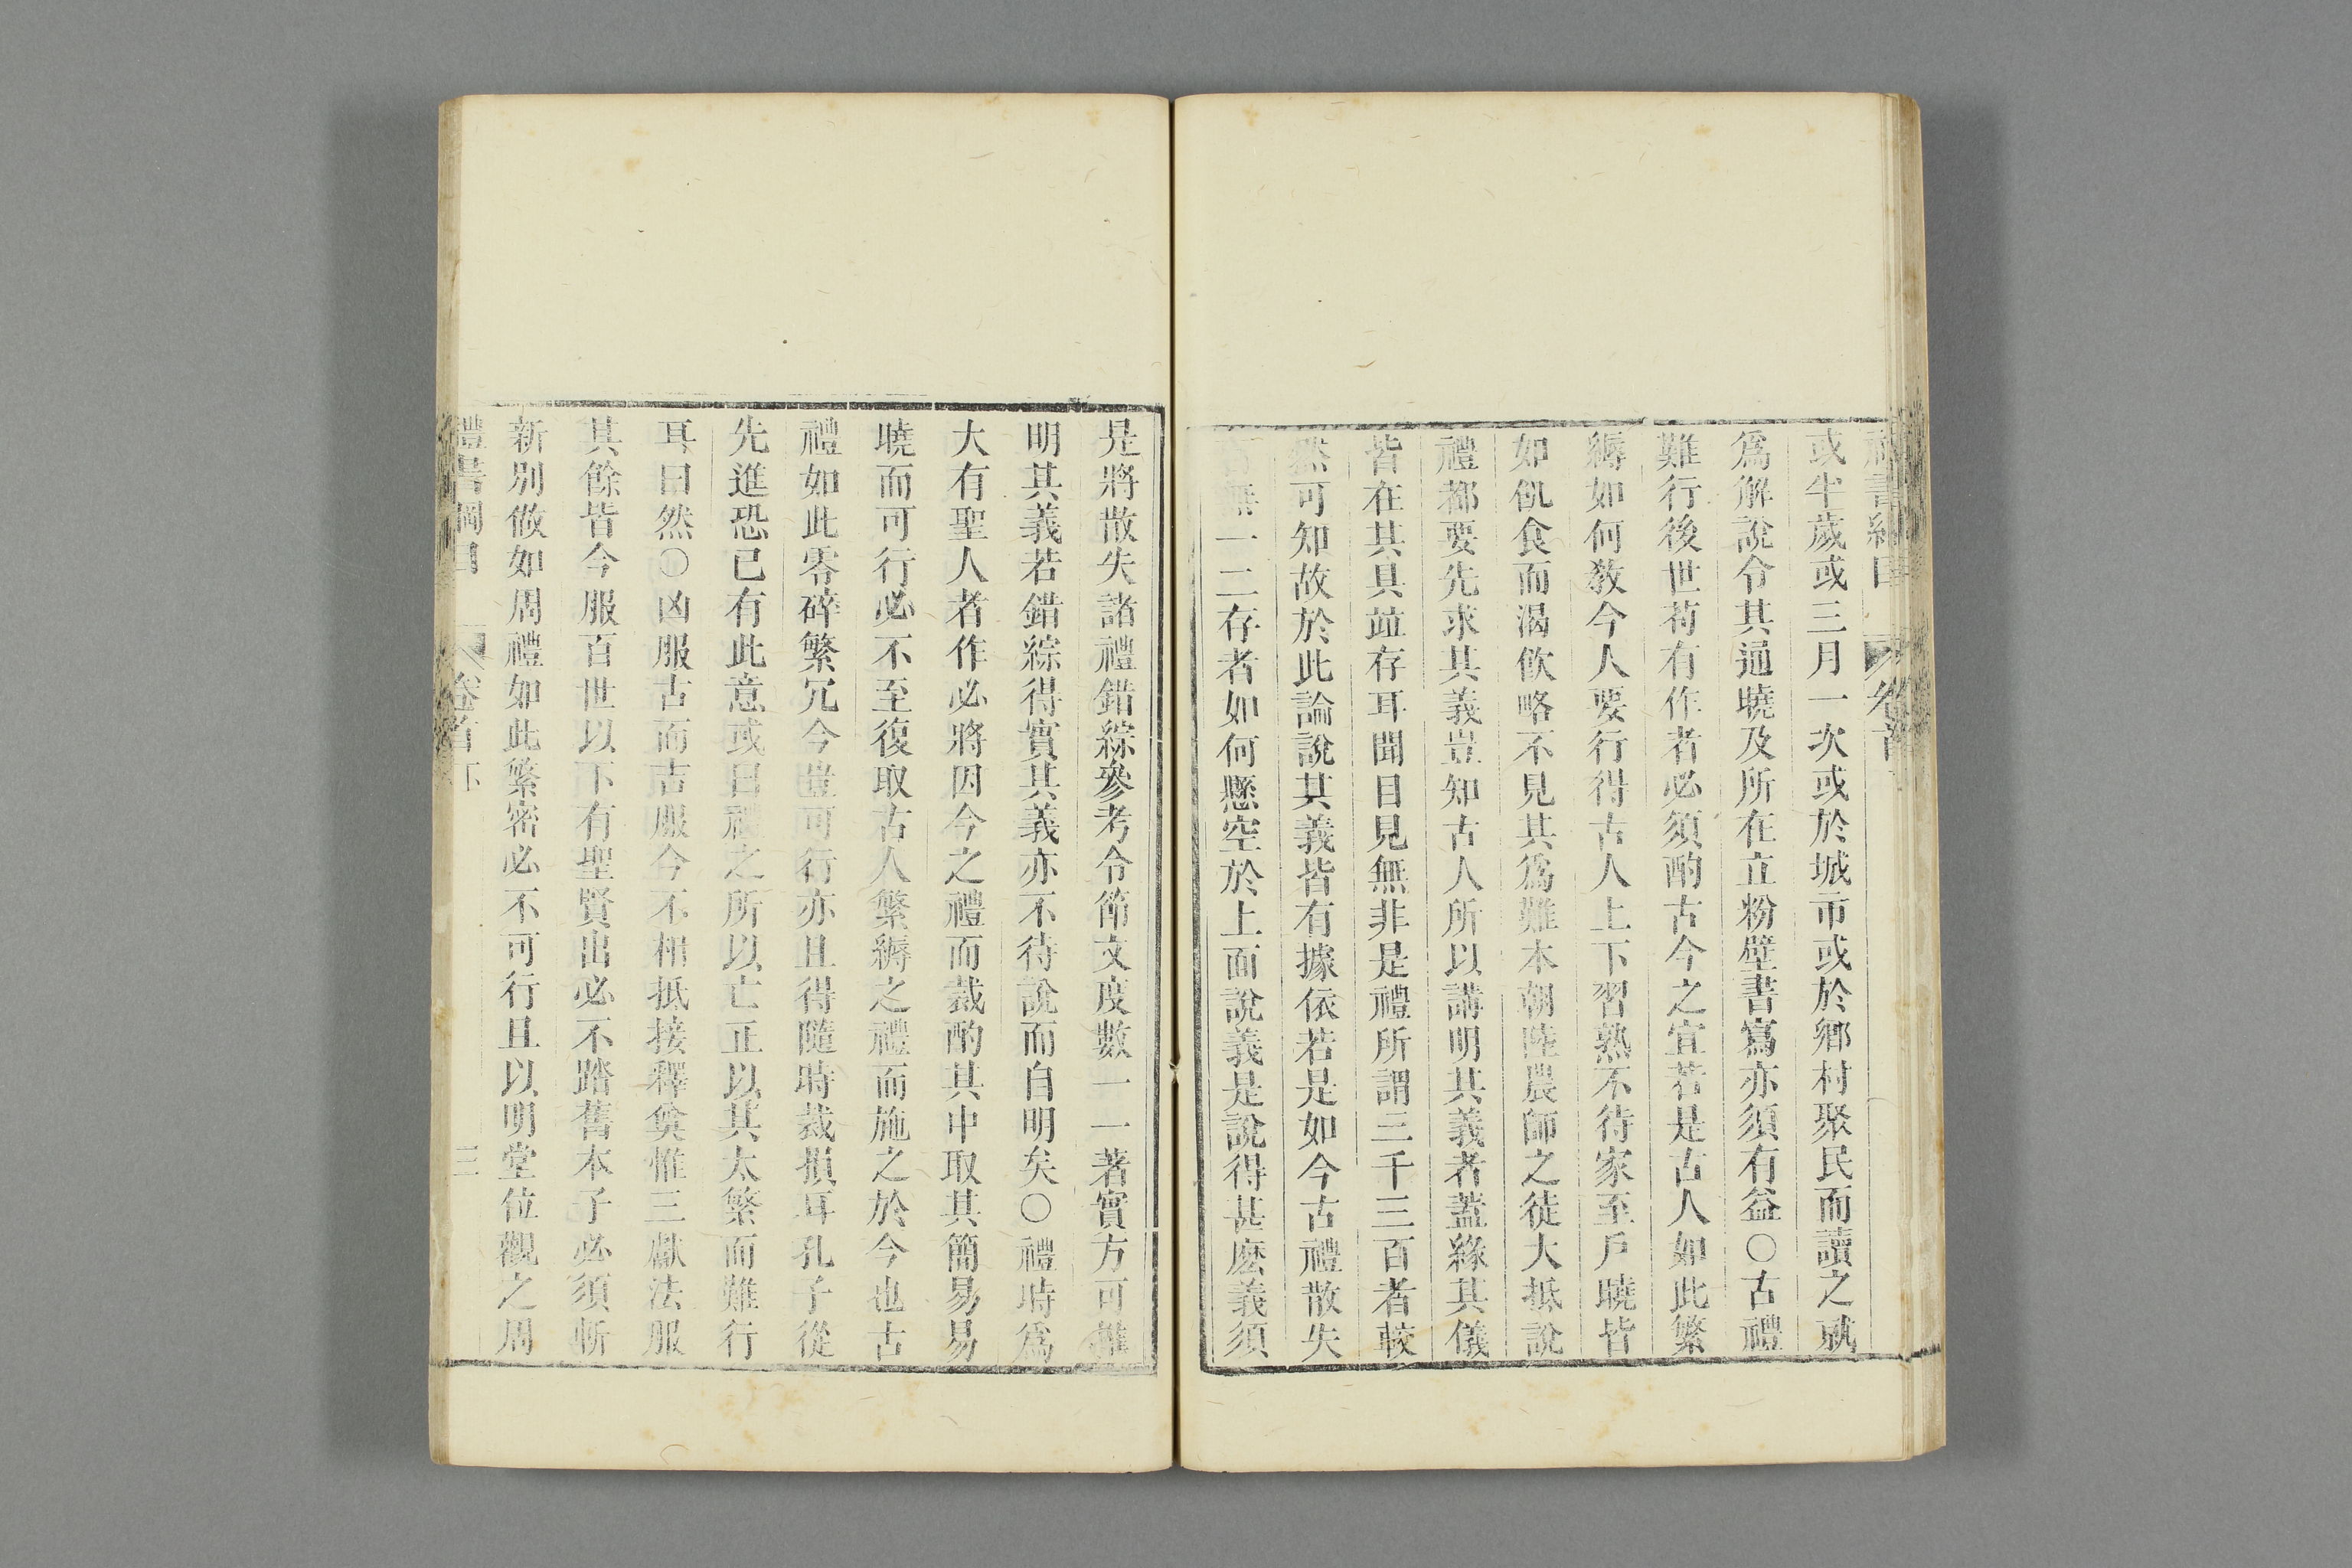 或半歲或三月一次或於城市或於鄉村聚民而讀之就
爲解說令其通曉及所在立粉壁書寫亦須有益○古禮
難行後世苟有作者必須酌古今之宜若是古人如此繁
縟如何敎今人要行得古人上下習熟不待家至戶曉皆
如飢食而渴飮略不見其爲難本朝陸農師之徒大抵說
禮都要先求其義豈知古人所以講明其義者蓋緣其儀
皆在其具竝存耳聞目見無非是禮所謂三千三百者較
然可知故於此論說其義皆有據依若是如今古禮散失
百無一二存者如何懸空於上面說義是說得甚麼義須
是將散失諸禮錯綜參考令節文度數一一著實方可推
明其義若錯綜得實其義亦不待說而自明矣○禮時爲
大有聖人者作必將因今之禮而裁酌其中取其簡易易
曉而可行必不至復取古人繁縟之禮而施之於今也古
禮如此零碎繁冗今豈可行亦且得隨時裁損耳孔子從
先進恐已有此意或曰禮之所以亡正以其太繁而難行
耳曰然○凶服古而吉服今不相抵接釋奠惟三獻法服
其餘皆今服百世以下有聖賢出必不踏舊本子必須斬
新別做如周禮如此繁密必不可行且以明堂位觀之周
禮書綱目 卷首下 三